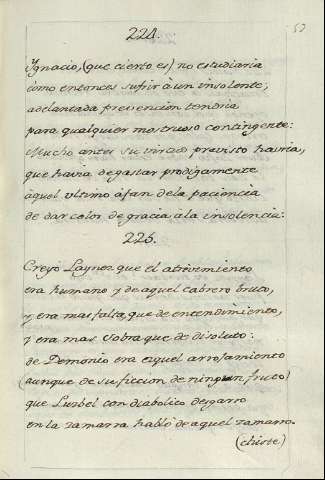 224.
Ygnacio, (que cierto es) no estudiaria
como entonces sufrir à un insolente,
adelantada prevencion tendria
para qualquier mostruoso contingente:
Mucho antes su virtud previsto havria,
que havia de gastar prodigamente
aquel ultimo afan de la paciencia
de dar color de gracia a la insolencia:
225.
Creyo Laynez que el atrevimiento
era humano y de aquel cabrero bruto,
y era mas falta, que de entendimiento,
y era mas sobra que de disoluto:
de Demonio era aquel arrojamiento
(aunque de su ficcion de ningun fruto)
que Luzbel con diabolico desgarro
en la zamarra habló de aquel zamarro.
(chiste)